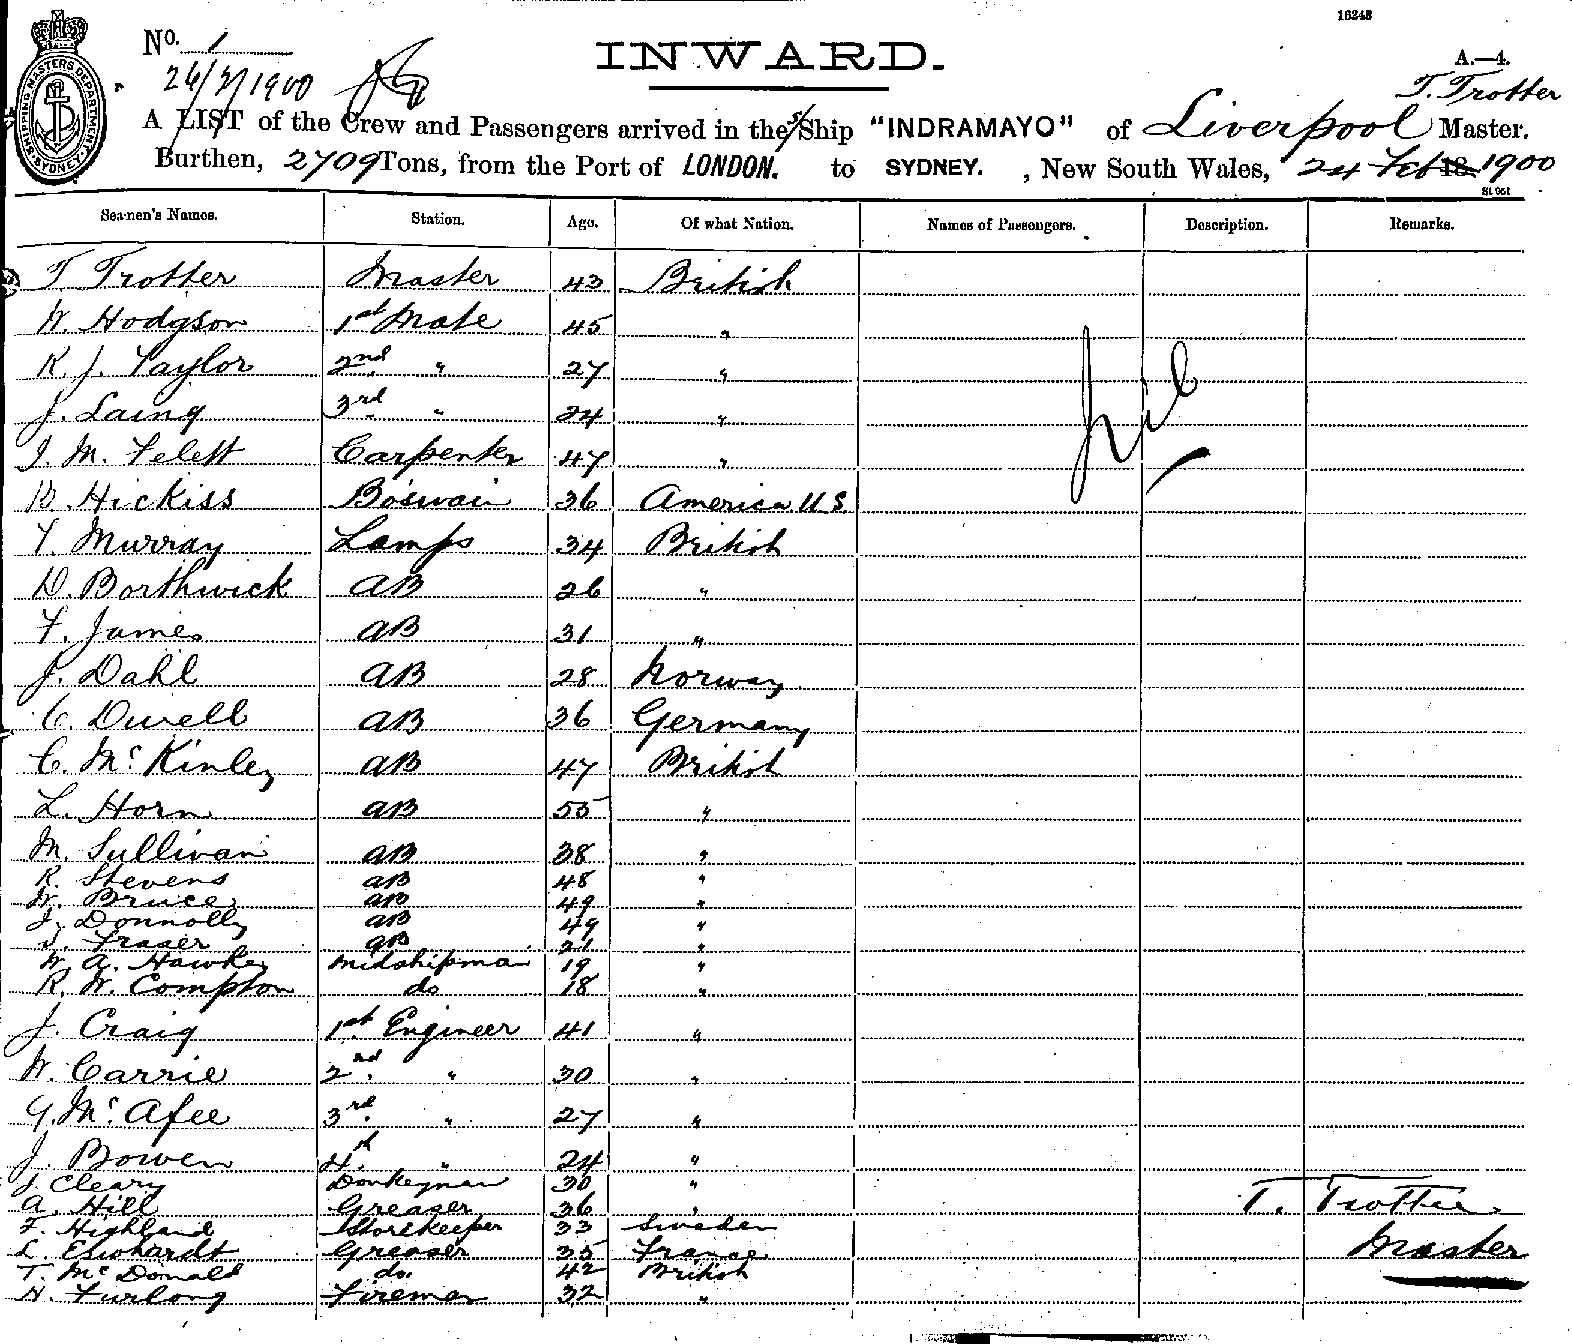 16248
No. 1
INWARD.
A.—4.
24/2/1900
T. Trotter
A LIST of the Crew and Passengers arrived in the S/Ship "INDRAMAYO" of Liverpool Master.
Burthen, 2709 Tons, from the Port of LONDON. to SYDNEY. , New South Wales, 24 Feb 18 1900
SHIPPING MASTERS DEPARTMENT SYDNEY
Seamen's Names. Station. Age. Of what Nation. Names of Passengers. Description. Remarks.
T Trotter Master 43 British
W. Hodgson 1st Mate 45 "
R. J. Taylor 2nd " 27 "
J. Laing 3rd " 24 "
J. M. Carpenter 47 "
Nil
Hickiss Boswain 36 America U S.
T. Murray Lamps 34 British
D. Borthwick AB 26 "
F. James AB 31 "
J. Dahl AB 28 Norway
C. Duvell AB 36 Germany
C. McKinley AB 47 British
L. Horn AB 55 "
M. Sullivan AB 38 "
R. Stevens AB 48 "
W. Bruce AB 49 "
J. Donnolly AB 49 "
Fraser AB 21 "
W. A. Hawke Midshipman 19 "
R. W. Compton do 18 "
J. Craig 1st Engineer 41 "
W. Carrie 2nd. " 30 "
G. McAfee 3rd. " 27 "
J. Bowen 4th. " 24 "
J. Cleary Donkeyman 30 "
A. Hill Greaser 36 "
T. Trotter
F. Highland Storekeeper 33 Sweden
L. Greaser 35 France
Master
T. McDonald do. 42 British
H. Furlong Fireman 32 "